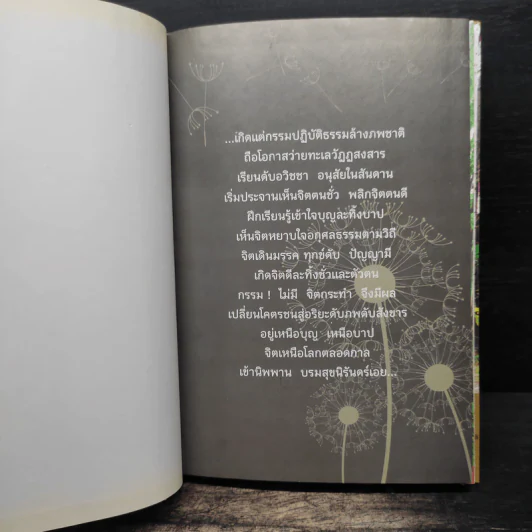 ...เกิดแต่กรรมปฏิบัติธรรมล้างภพชาติ
ถือโอกาสว่ายทะเลวัฏฏสงสาร
เรียนดับอวิชชา อนุสัยในสันดาน
เริ่มประจานเห็นจิตตนชั่ว พลิกจิตตนดี
ฝึกเรียนรู้เข้าใจบุญละทิ้งบาป
เห็นจิตหยาบใจอกุศลธรรมตามวิถี
จิตเดินมรรค ทุกข์ดับ ปัญญามี
เกิดจิตดีละทิ้งชั่วและตัวตน
กรรม ! ไม่มี จิตกระทำ จึงมีผล
เปลี่ยนโคตรชนสู่อริยะดับภพดับสังขาร
อยู่เหนือบุญ เหนือบาป
จิตเหนือโลกตลอดกาล
เข้านิพพาน บรมสุขนิรันดร์เอย...